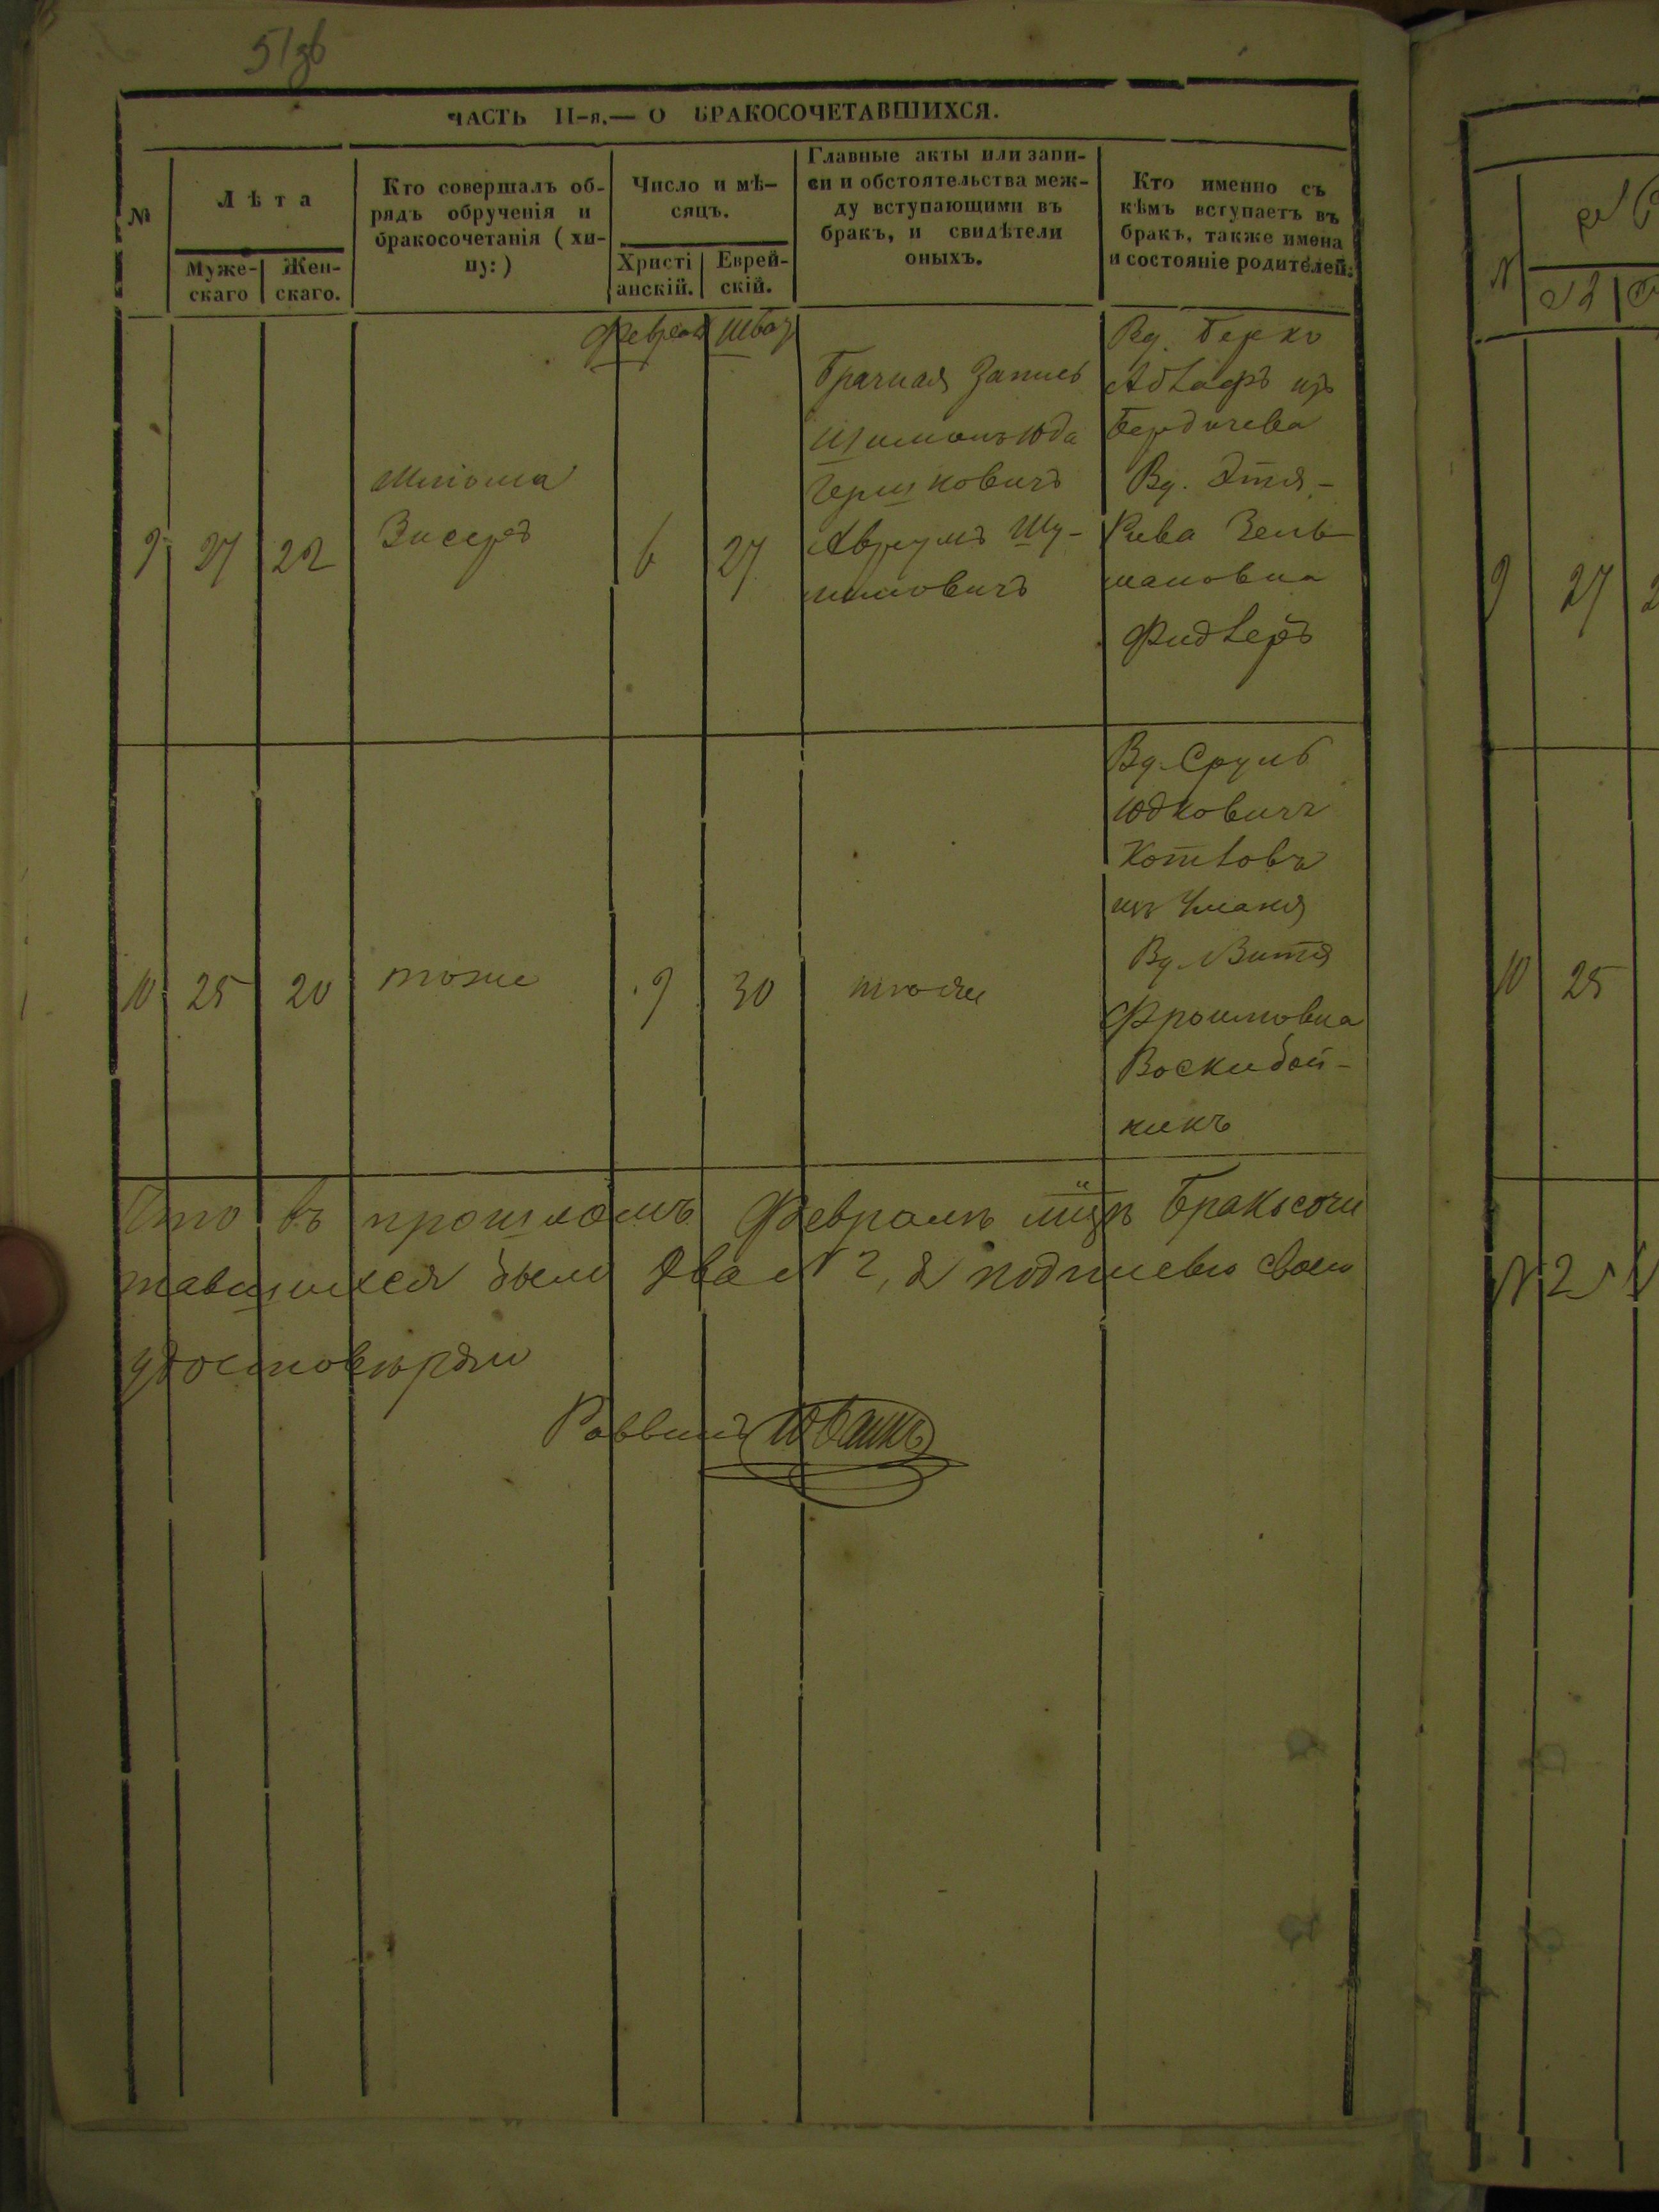 51зв
ЧАСТЬ II-я.— О БРАКОСОЧЕТАВШИХСЯ.
№
Лѣта
Муже-
скаго
Жен-
скаго.
Кто совершалъ об-
рядъ обрученія и
бракосочетанія (хи-
пу:)
Число и мѣ-
сяцъ.
Христі
анскій.
Еврей-
скій.
Главные акты или запи-
си и обстоятельства меж-
ду вступающими въ
бракъ, и свидѣтели
оныхъ.
Кто именно съ
кѣмъ вступаетъ въ
бракъ, также имена
и состояніе родителей.
Февраля
Шватъ
9
27
22
Шлiома
Зисеръ
6
27
Брачная Запись
Шимонъ Юда
Гершковичъ
Аврумъ Шу-
лимовичъ
Вд. Берко
из
Бердичева
Вд. Этя-
Рива Зель
мановна
Фидлеръ
10
25
20
тоже
9
30
тоже
Вд. Сруль
Юдковичъ
Котловъ
из Уманя
Вд. Витя
Фроимовна
Воскибой-
никъ
Что въ прошломъ Февралѣ мцѣ Бракосочи
тавшихся было два № 2, подписью своею
удостовѣряю
Раввинъ
9
27
10
25
№ 2